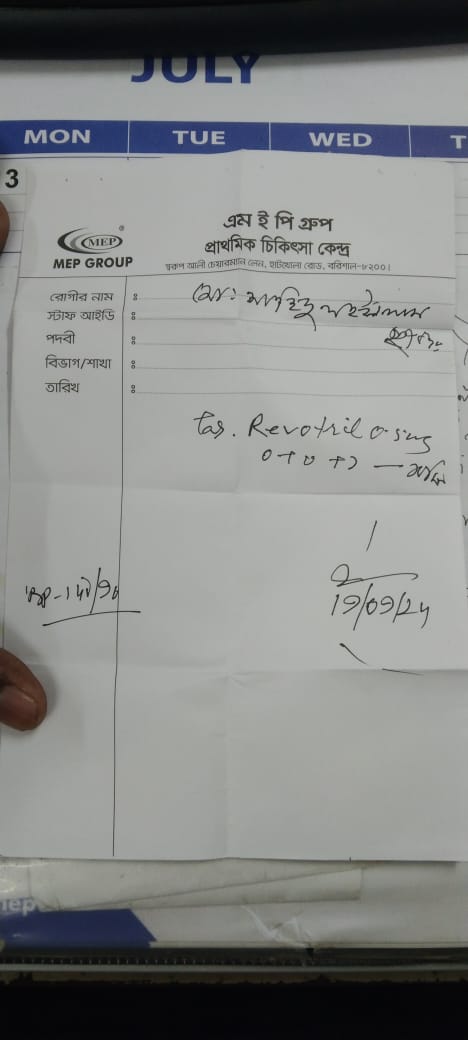 JULY
MON TUE WED T
3
MEP
MEP GROUP
এম ই পি গ্রুপ
প্রাথমিক চিকিৎসা কেন্দ্র
স্বরুপ আলী চেয়ারম্যান লেন, হাটখোলা রোড, বরিশাল-৮২০০।
রোগীর নাম : মো:
স্টাফ আইডি :
পদবী :
বিভাগ/শাখা :
তারিখ :
Tab. Revotril 0.5mg
0+0+1 —
BP-140/90
19/09/24